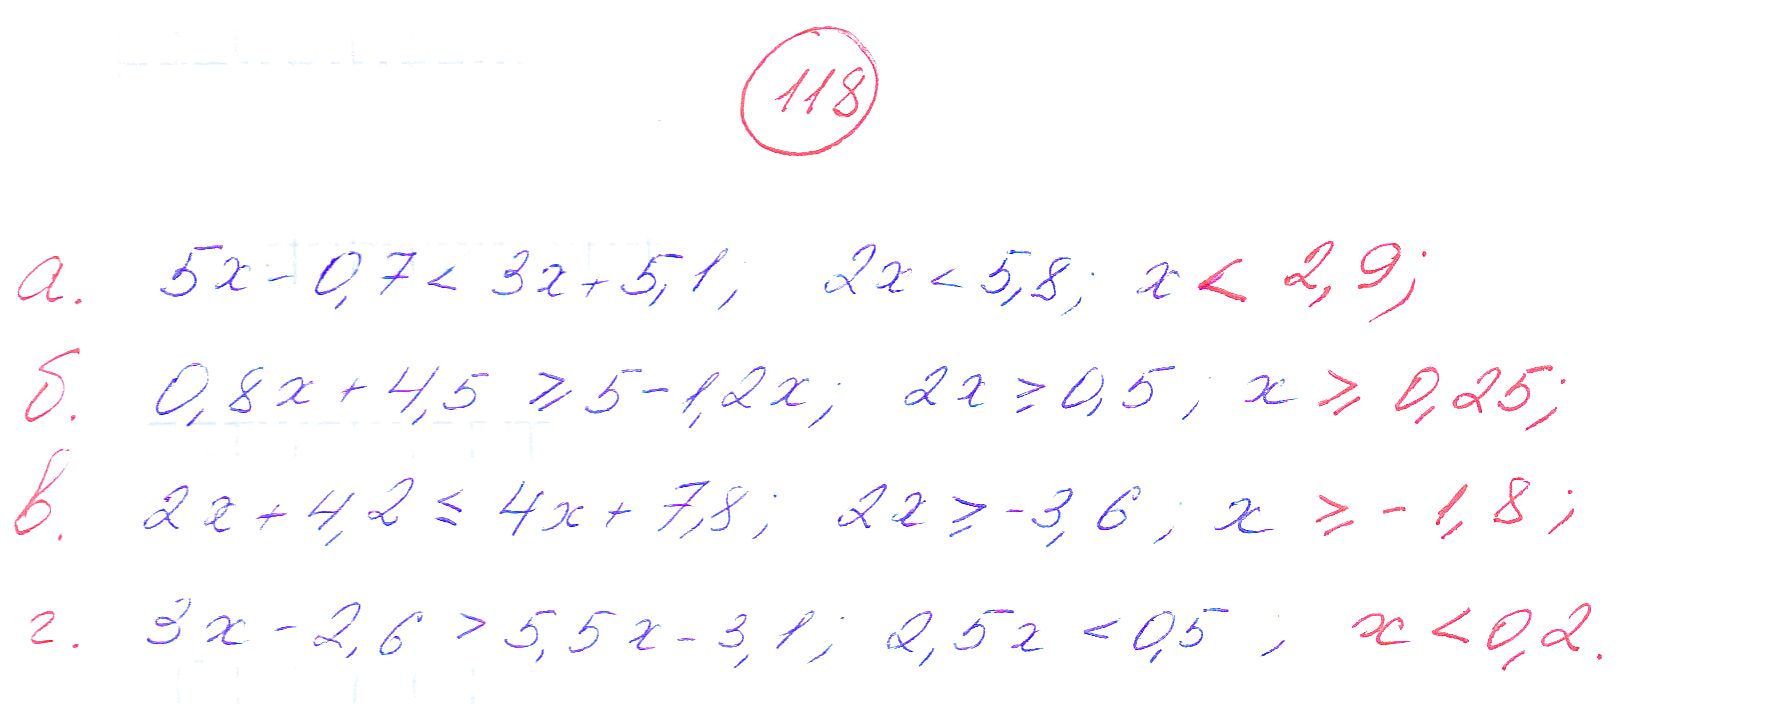 118
а. 5x - 0,7 < 3x + 5,1; 2x < 5,8; x < 2,9;
б. 0,8x + 4,5 ⩾ 5 - 1,2x; 2x ⩾ 0,5; x ⩾ 0,25;
в. 2x + 4,2 ⩽ 4x + 7,8; 2x ⩾ -3,6; x ⩾ -1,8;
г. 3x - 2,6 > 5,5x - 3,1; 2,5x < 0,5; x < 0,2.